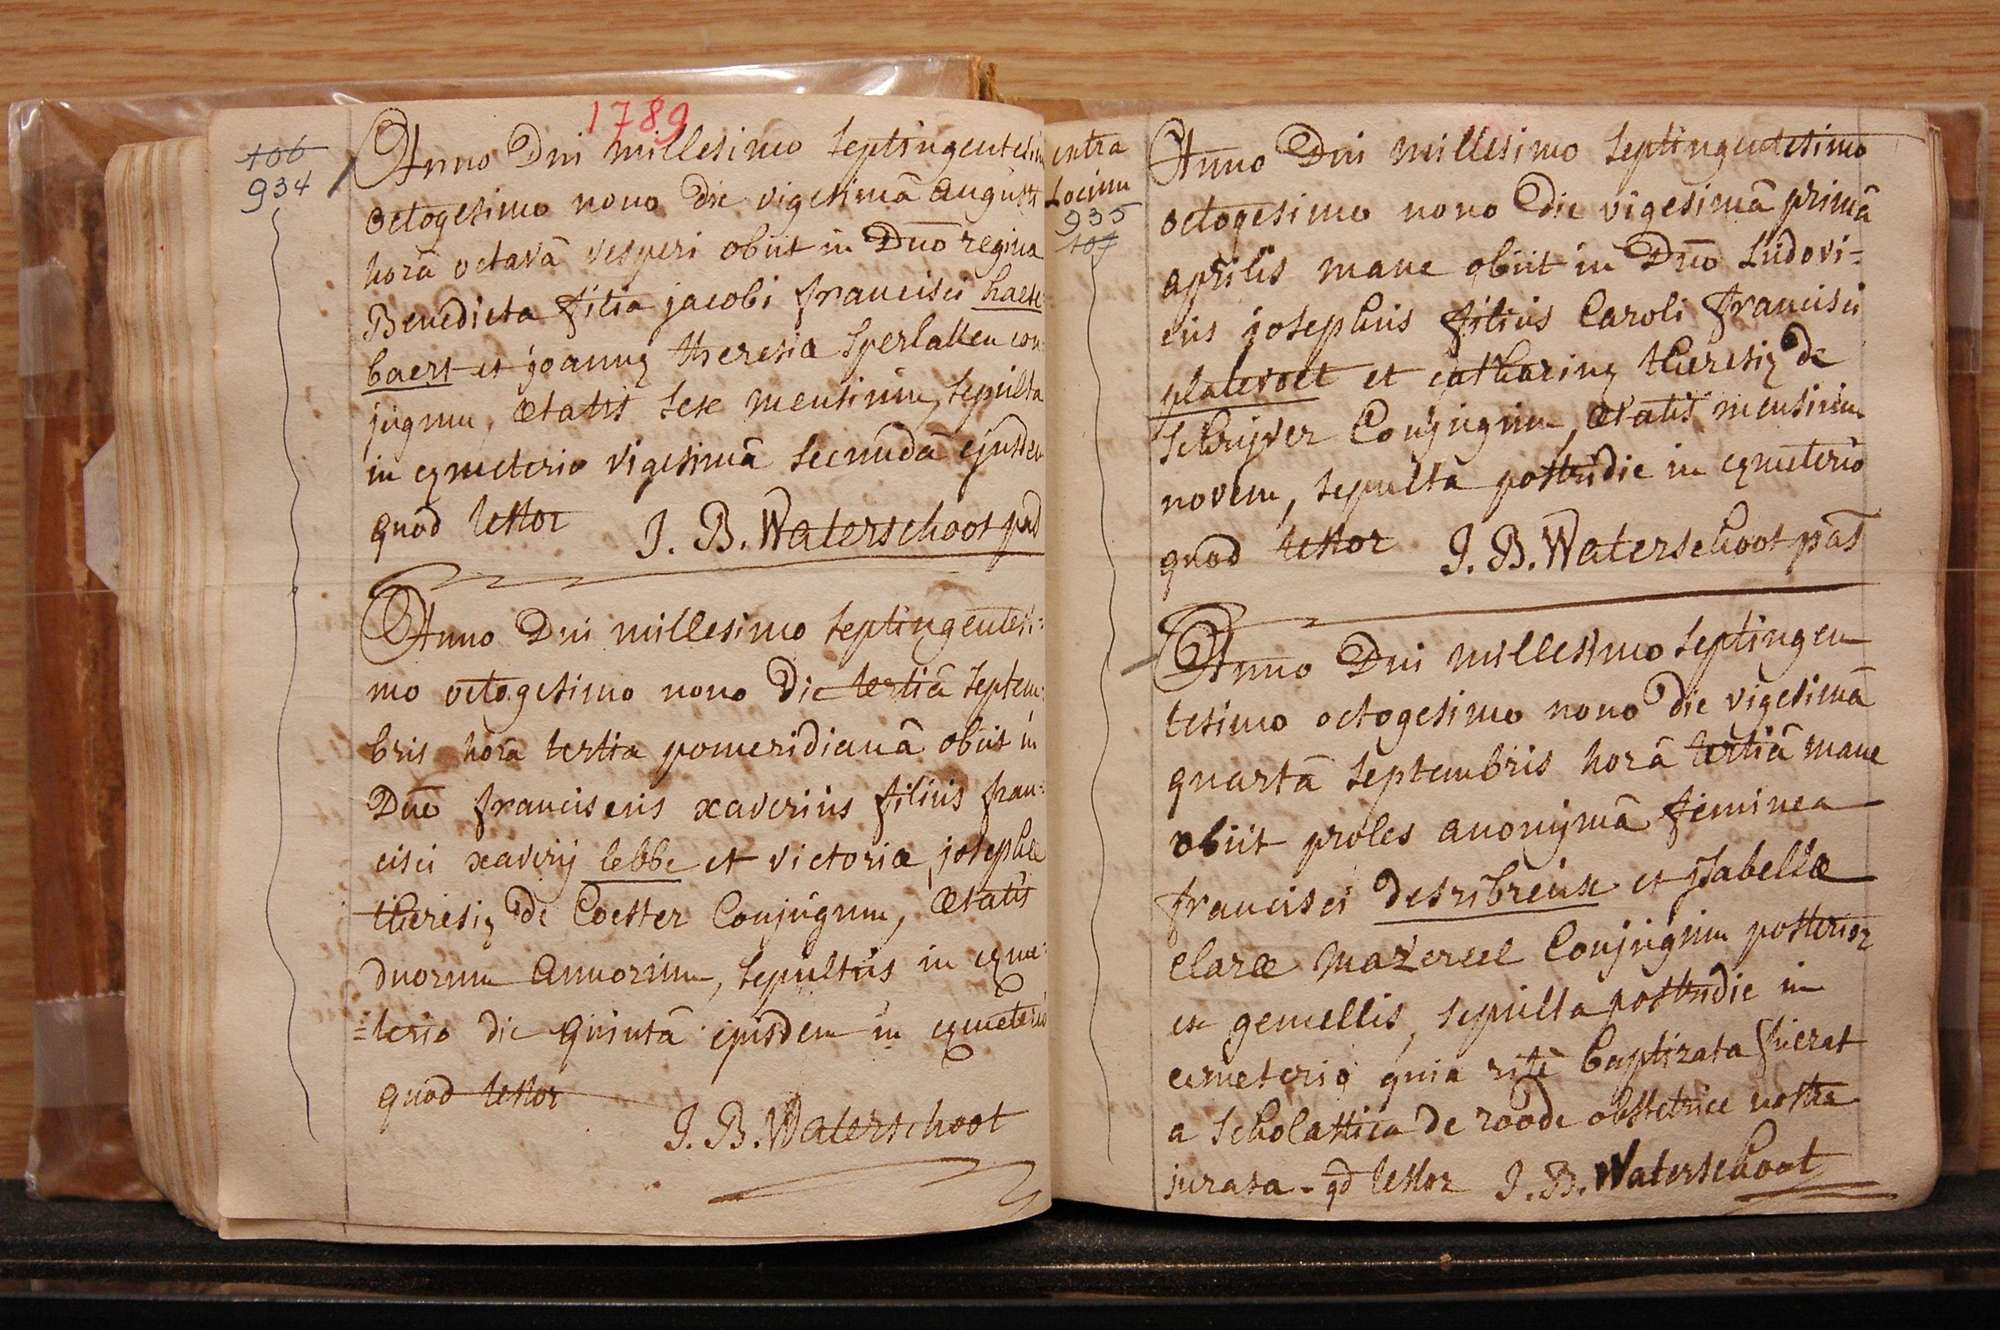 1789
106
934
Anno Dni millesimo septingentesim
octogesimo nono die vigesimâ augusti
horâ octavâ vesperi obiit in Dno regina
Benedicta filia jacobi francisci haese
baert et joannæ theresiæ Sperlaken con
jugum, ætatis sex mensium, sepulta
in cymeterio vigesimâ secundâ ejusdem
quod testor J. B. Waterschoot pas
Anno Dni millesimo septingentesi=
mo octogesimo nono die tertiâ septem=
bris horâ tertia pomeridianâ obiit in
Dno franciscus xaverius filius fran=
cisci xaverij lebbe et victoriæ josephæ
theresiæ de Coester Conjugum, ætatis
duorum annorum, sepultus in cyme=
=terio die quintâ ejusdem in cymeterio
quod testor
J. B. Waterschoot
extra
Locum
935
107
Anno Dni millesimo septingentesimo
octogesimo nono die vigesimâ primâ
aprilis mane obiit in Dno Ludovi=
cus josephus filius Caroli francisci
platevoet et catharinæ theresiæ de
Schrijver Conjugum, ætatis mensium
novem, sepulta postridie in cymeterio
quod testor J. B. Waterschoot pas
Anno Dni millesimo septingen
tesimo octogesimo nono die vigesimâ
quartâ septembris horâ tertiâ mane
obiit proles anonymâ feminea
francisci desribreux et isabellæ
claræ mazereel Conjugum posterior
ex gemellis, sepulta postridie in
cemeterio quia ritè baptizata fuerat
a scholastica de roode obstetrice nostra
jurata - qd testor J. B. Waterschoot